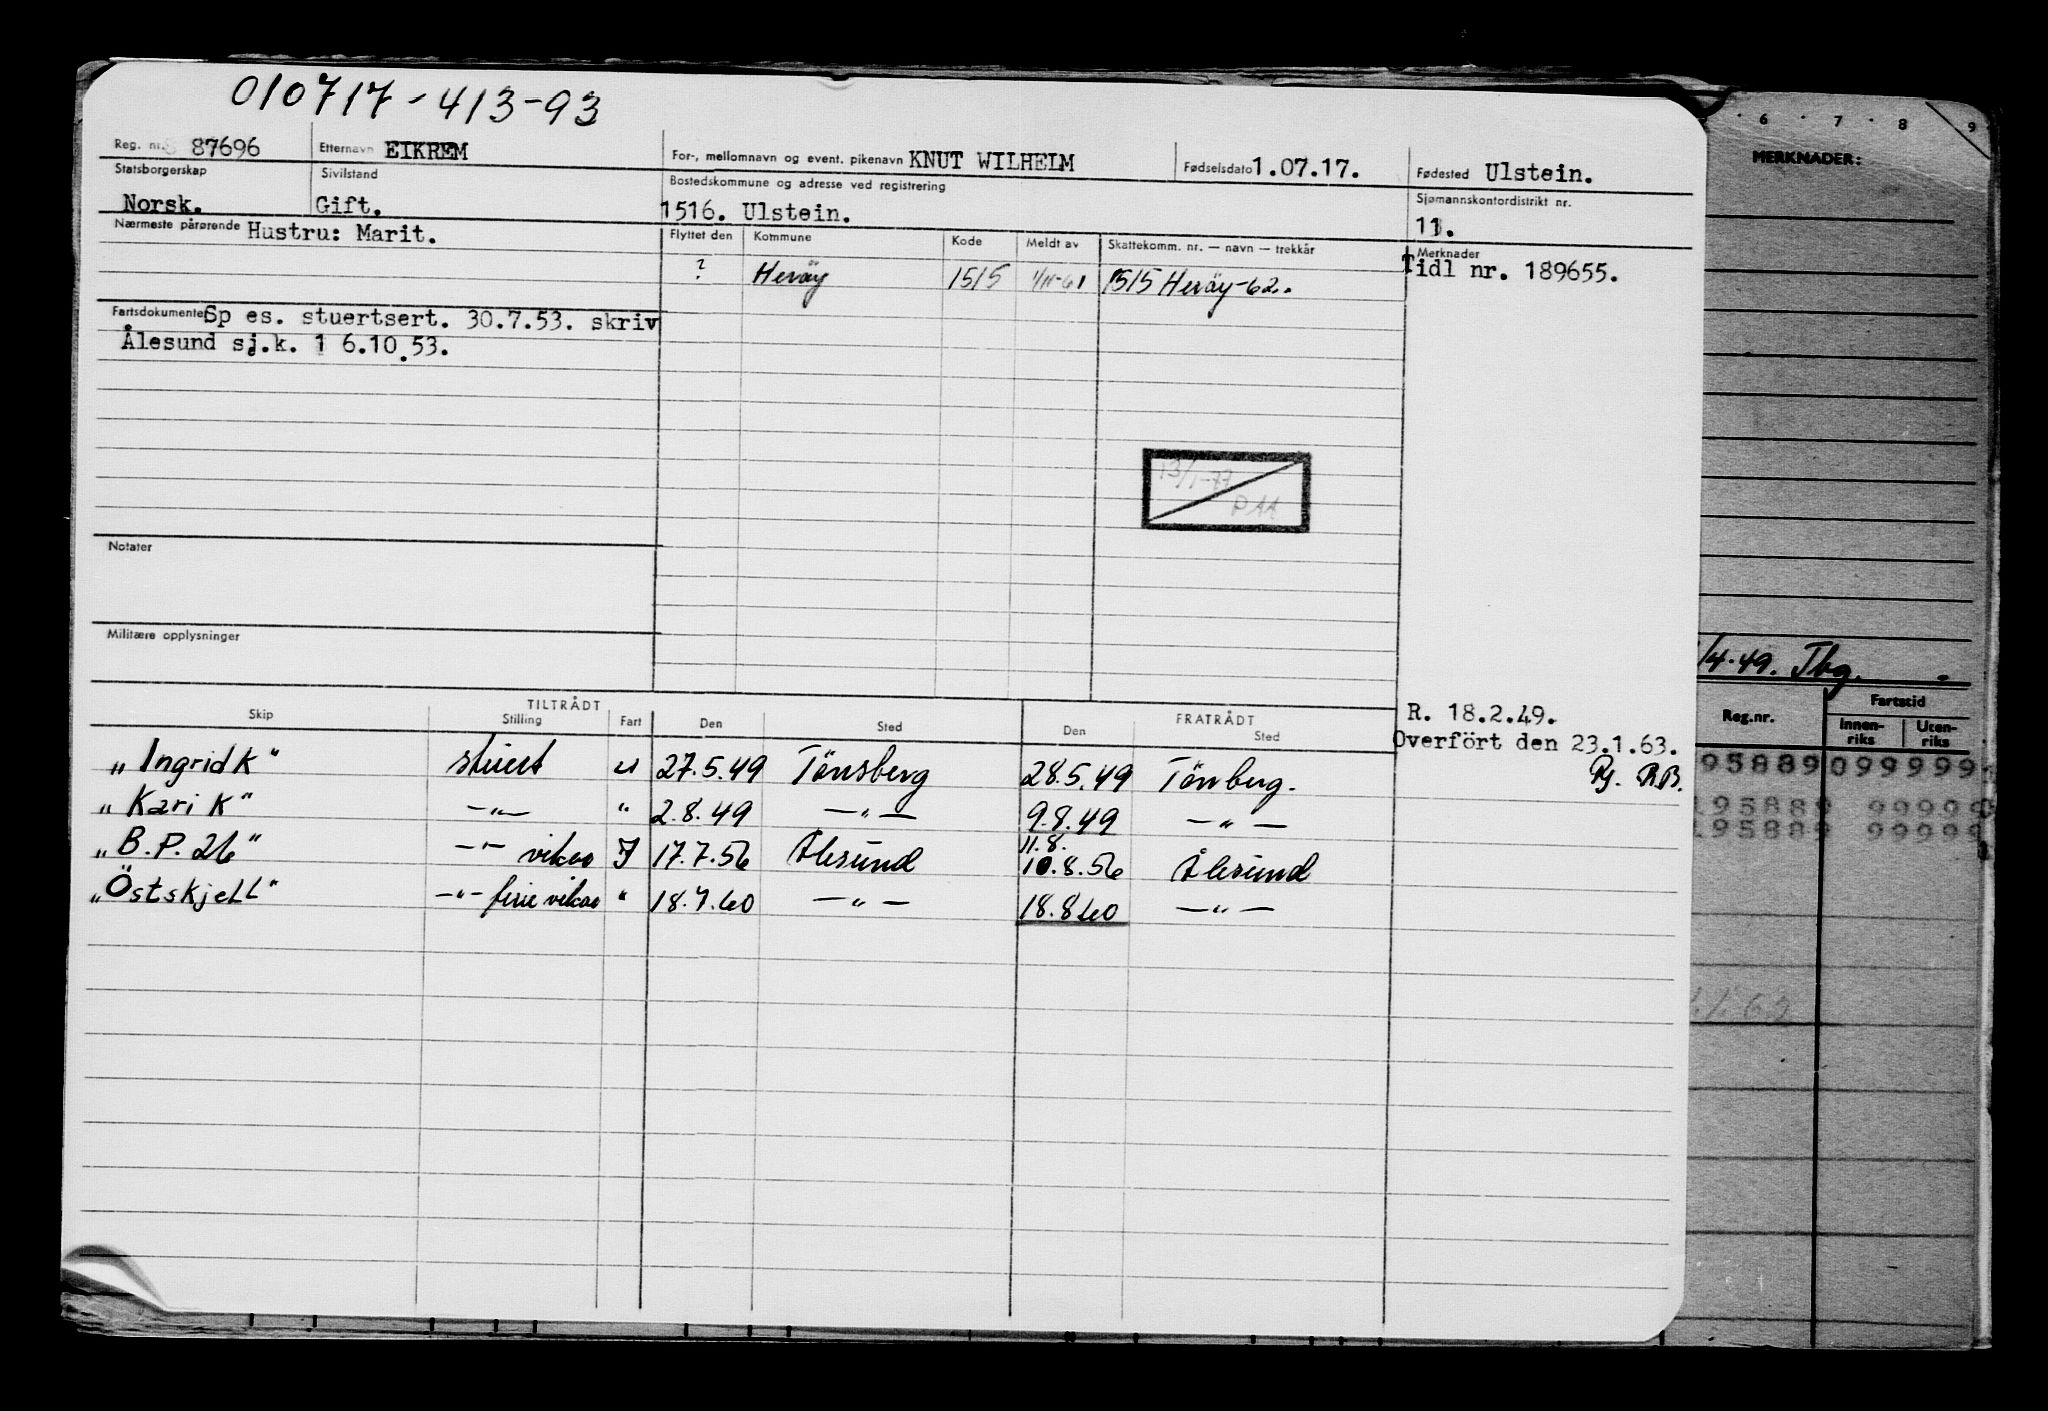 010717-413-93
Reg. nr. 87696 Etternavn EIKREM For-, mellomnavn og event. pikenavn KNUT WILHELM Fødselsdato 1.07.17. Fødested Ulstein.
Statsborgerskap Sivilstand Bostedskommune og adresse ved registrering Sjømannskontordistrikt nr.
Norsk. Gift. 1516. Ulstein. 11.
Nærmeste pårørende Hustru: Marit. Flyttet den Kommune Kode Meldt av Skattekomm. nr. — navn — trekkår Merknader
? Heröy 1515 1/11-61 1515 Heröy-62. Tidl nr. 189655.
Fartsdokumenter Sp es. stuertsert. 30.7.53. skriv
Ålesund sj.k. 1 6.10.53.
13/1-77
Notater
Militære opplysninger
R. 18.2.49.
Overfört den 23.1.63.
R.B.
TILTRÅDT FRATRÅDT
Skip Stilling Fart Den Sted Den Sted
„Ingrid K" stuert u 27.5.49 Tönsberg 28.5.49 Tönberg.
„Kari K" —"— " 2.8.49 —"— 9.8.49 —"—
11.8.
„B.P. 26" —"— vikar I 17.7.56 Ålesund 10.8.56 Ålesund
„Östskjell" —"— ferievikar " 18.7.60 —"— 18.8.60 —"—
6 7 8 9
MERKNADER:
/4.49. Tbg.
Reg.nr. Fartstid
Innenriks Utenriks
95889 099999
195889 99999
195889 99999